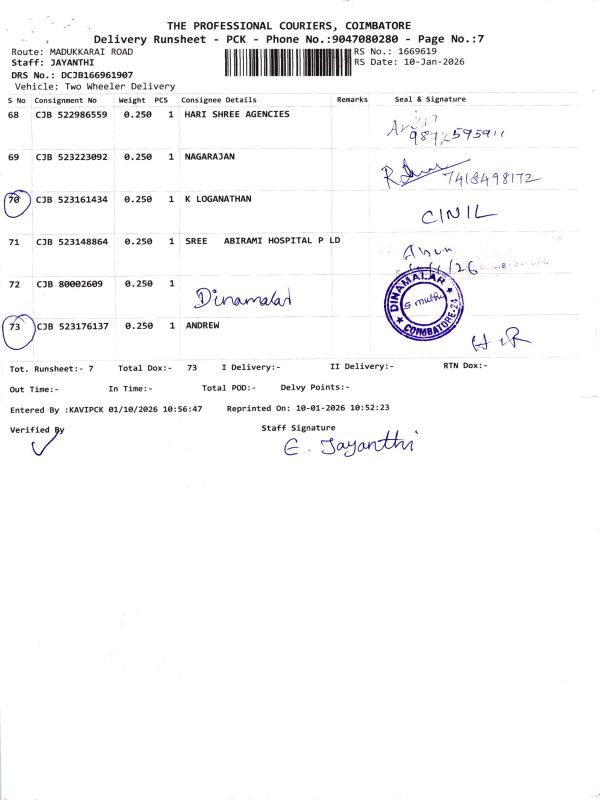 THE PROFESSIONAL COURIERS, COIMBATORE
Delivery Runsheet - PCK - Phone No.:9047080280 - Page No.:7
Route: MADUKKARAI ROAD RS No.: 1669619
Staff: JAYANTHI RS Date: 10-Jan-2026
DRS No.: DCJB166961907
Vehicle: Two Wheeler Delivery
S No Consignment No Weight PCS Consignee Details Remarks Seal & Signature
68 CJB 522986559 0.250 1 HARI SHREE AGENCIES
69 CJB 523223092 0.250 1 NAGARAJAN 7418498172
70 CJB 523161434 0.250 1 K LOGANATHAN CINIL
71 CJB 523148864 0.250 1 SREE ABIRAMI HOSPITAL P LD
72 CJB 80002609 0.250 1 Dinamalar DINAMALAR S muthu COIMBATORE-24
73 CJB 523176137 0.250 1 ANDREW H R
Tot. Runsheet:- 7 Total Dox:- 73 I Delivery:- II Delivery:- RTN Dox:-
Out Time:- In Time:- Total POD:- Delvy Points:-
Entered By :KAVIPCK 01/10/2026 10:56:47 Reprinted On: 10-01-2026 10:52:23
Verified By Staff Signature
E. Jayanthi